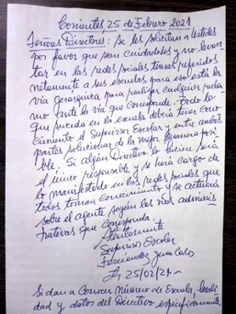 Corrientes 25 de Febrero 2021
Señores Directores: se les solicita a ustedes
por favor que sean cuidadosos y no levan
tar en las redes sociales temas referidos
netamente a sus escuelas para eso está la
vía Jerárquica para realizar cualquier recla
mo ante la vía que corresponde. Todo lo
que suceda en la escuela deberá tener cono
cimiento el Supervisor Escolar y entre ambas
partes solucionar de la mejor forma posi
ble. Si algún Directivo lo hiciera será
el único responsable y se hará cargo de
lo manifestado en las redes sociales que
todos toman conocimiento se actuará
sobre el agente según las vías adminis
trativas que corresponda.
Atentamente
Supervisor Escolar
Fernández Juan Carlos
25/02/21-
Si dan a Conocer Número de Escuela, Locali
dad y datos del Directivo específicamente